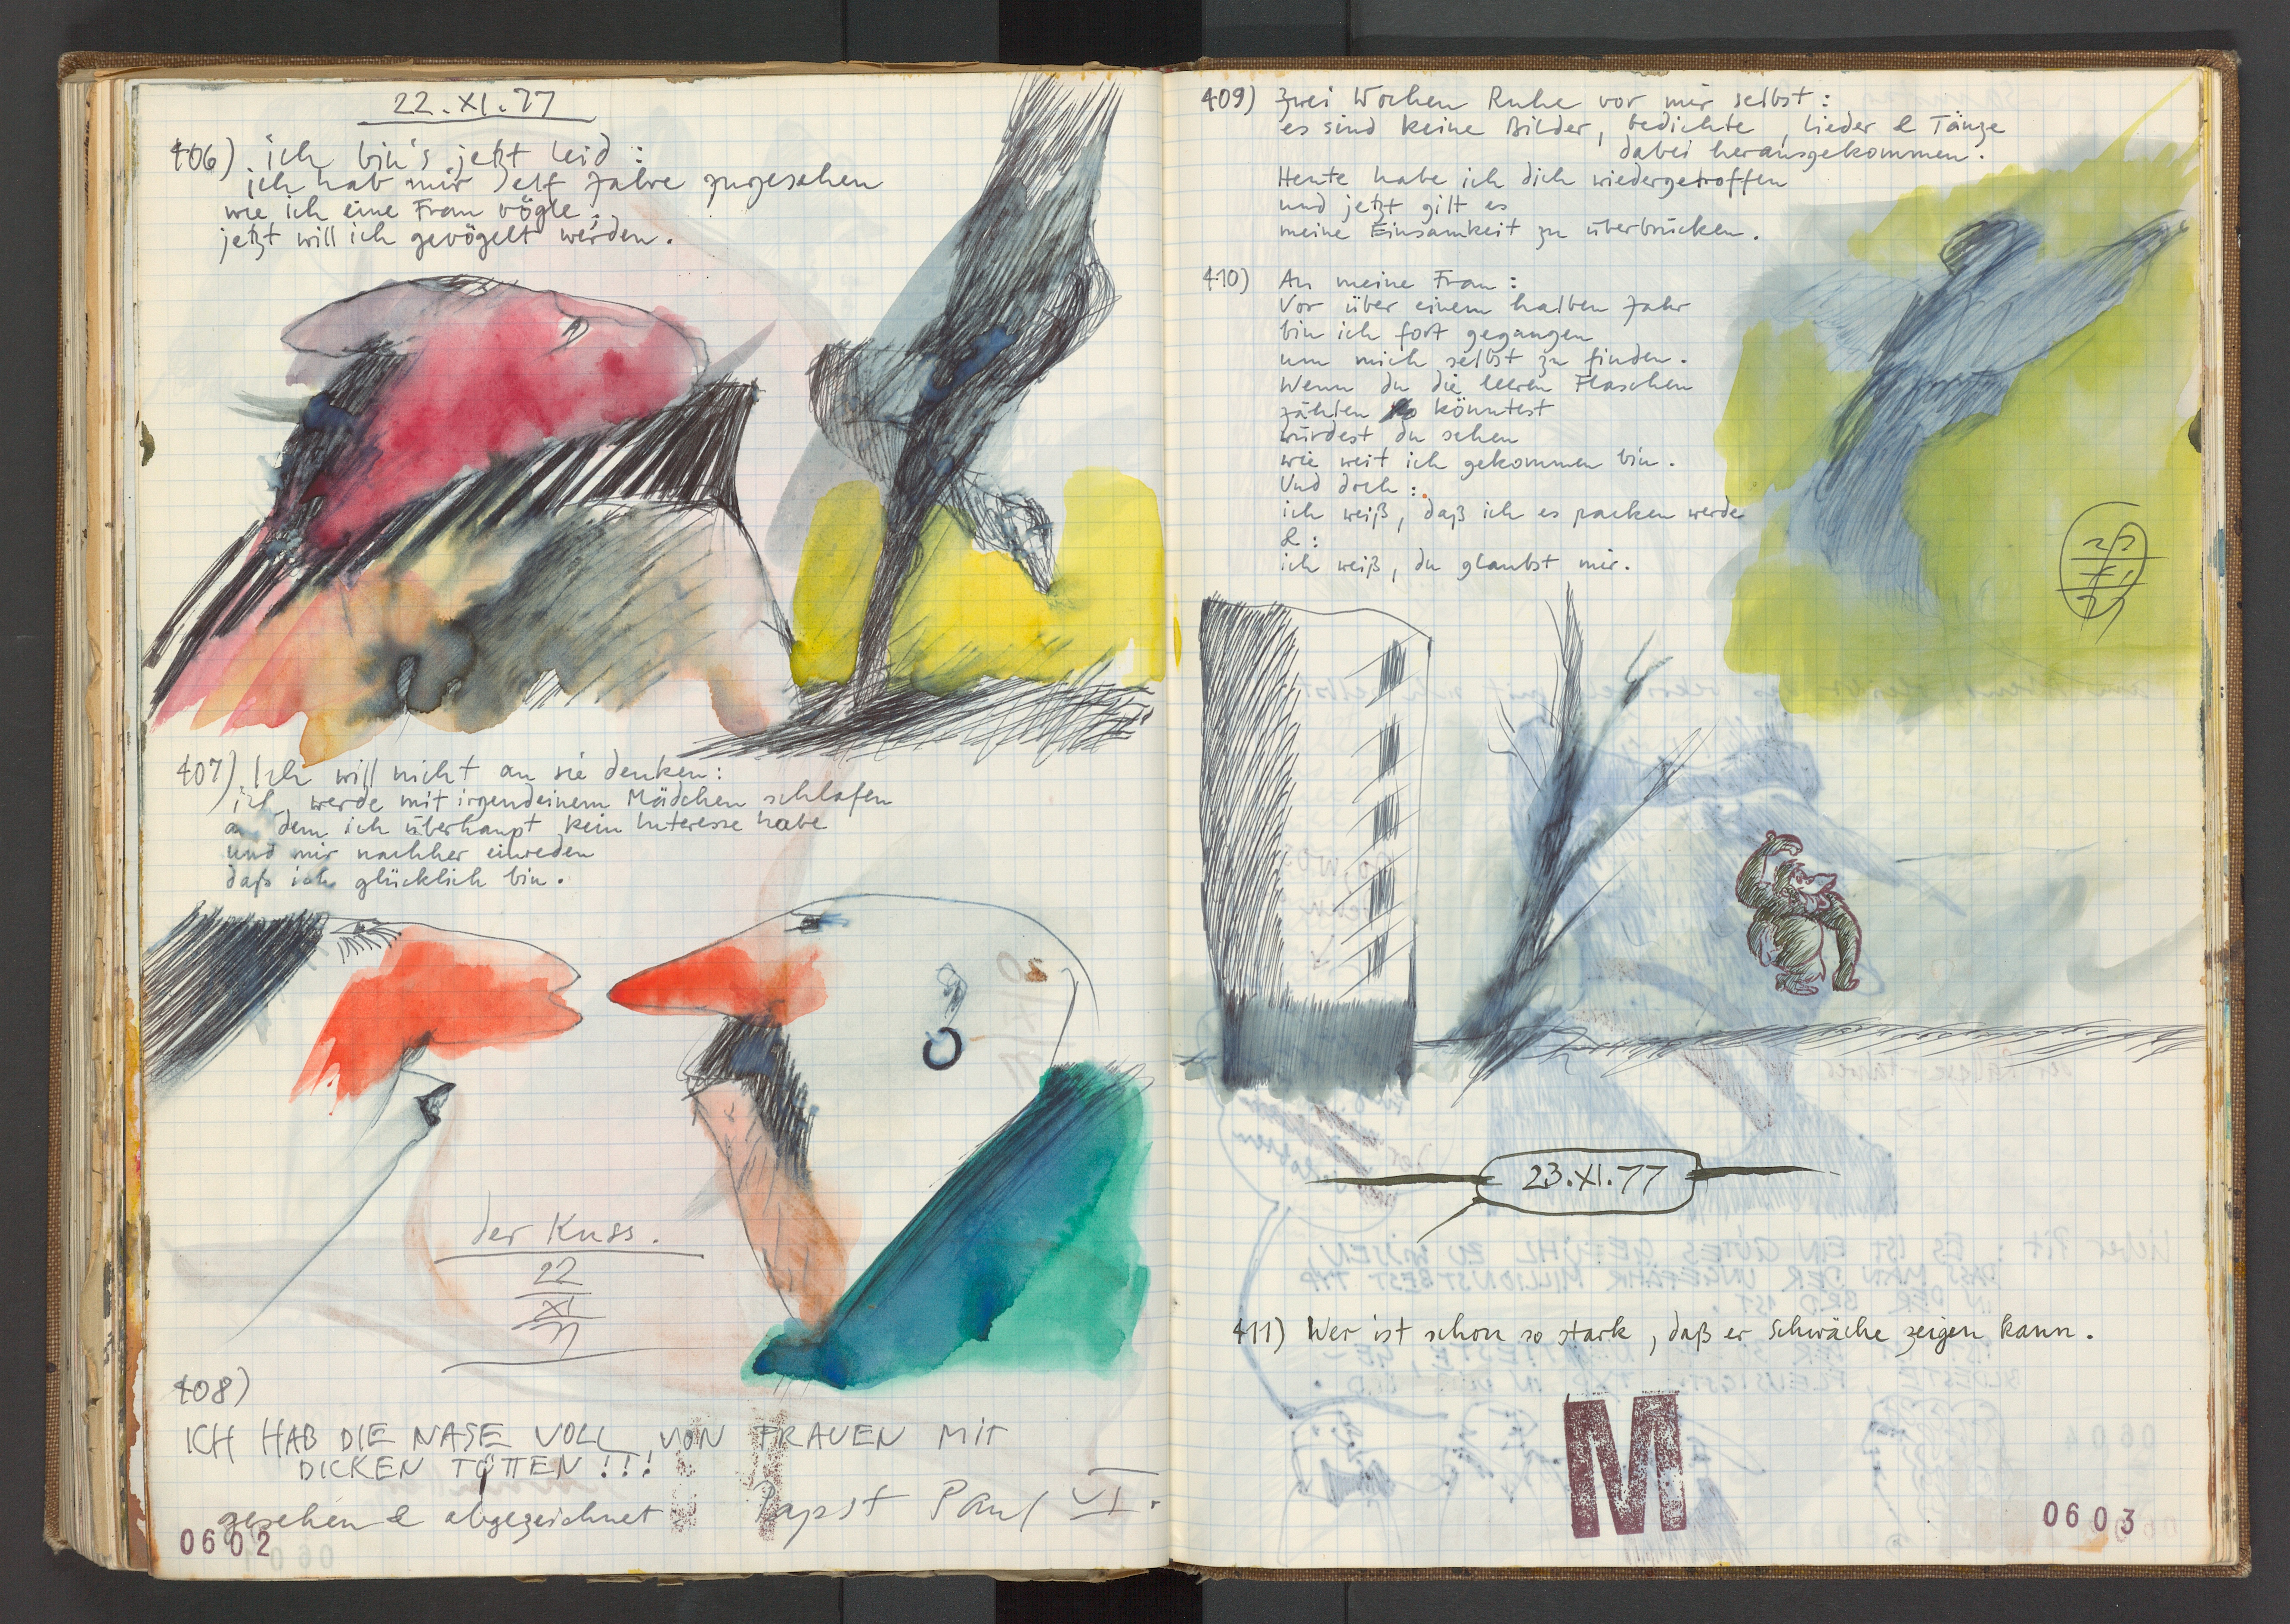 22.XI.77
406) ich bin's jetzt leid :
ich hab mir elf Jahre zugesehen
wie ich eine Frau vögle :
jetzt will ich gevögelt werden.
407) Ich will nicht an sie denken :
ich werde mit irgendeinem Mädchen schlafen
an dem ich überhaupt kein Interesse habe
und mir nachher einreden
daß ich glücklich bin.
der Kuss.
22
XI
77
408)
ICH HAB DIE NASE VOLL VON FRAUEN MIT
DICKEN TITTEN !!!
gesehen & abgezeichnet Papst Paul VI.
0602
409) Zwei Wochen Ruhe vor mir selbst :
es sind keine Bilder, Gedichte, Lieder & Tänze
dabei herausgekommen.
Heute habe ich dich wiedergetroffen
und jetzt gilt es
meine Einsamkeit zu überbrücken.
410) An meine Frau :
Vor über einem halben Jahr
bin ich fort gegangen
um mich selbst zu finden.
Wenn du die leeren Flaschen
zählen könntest
würdest du sehen
wie weit ich gekommen bin.
Und doch :
ich weiß, daß ich es packen werde
& :
ich weiß, du glaubst mir.
23.XI.77
411) Wer ist schon so stark, daß er Schwäche zeigen kann.
M
0603